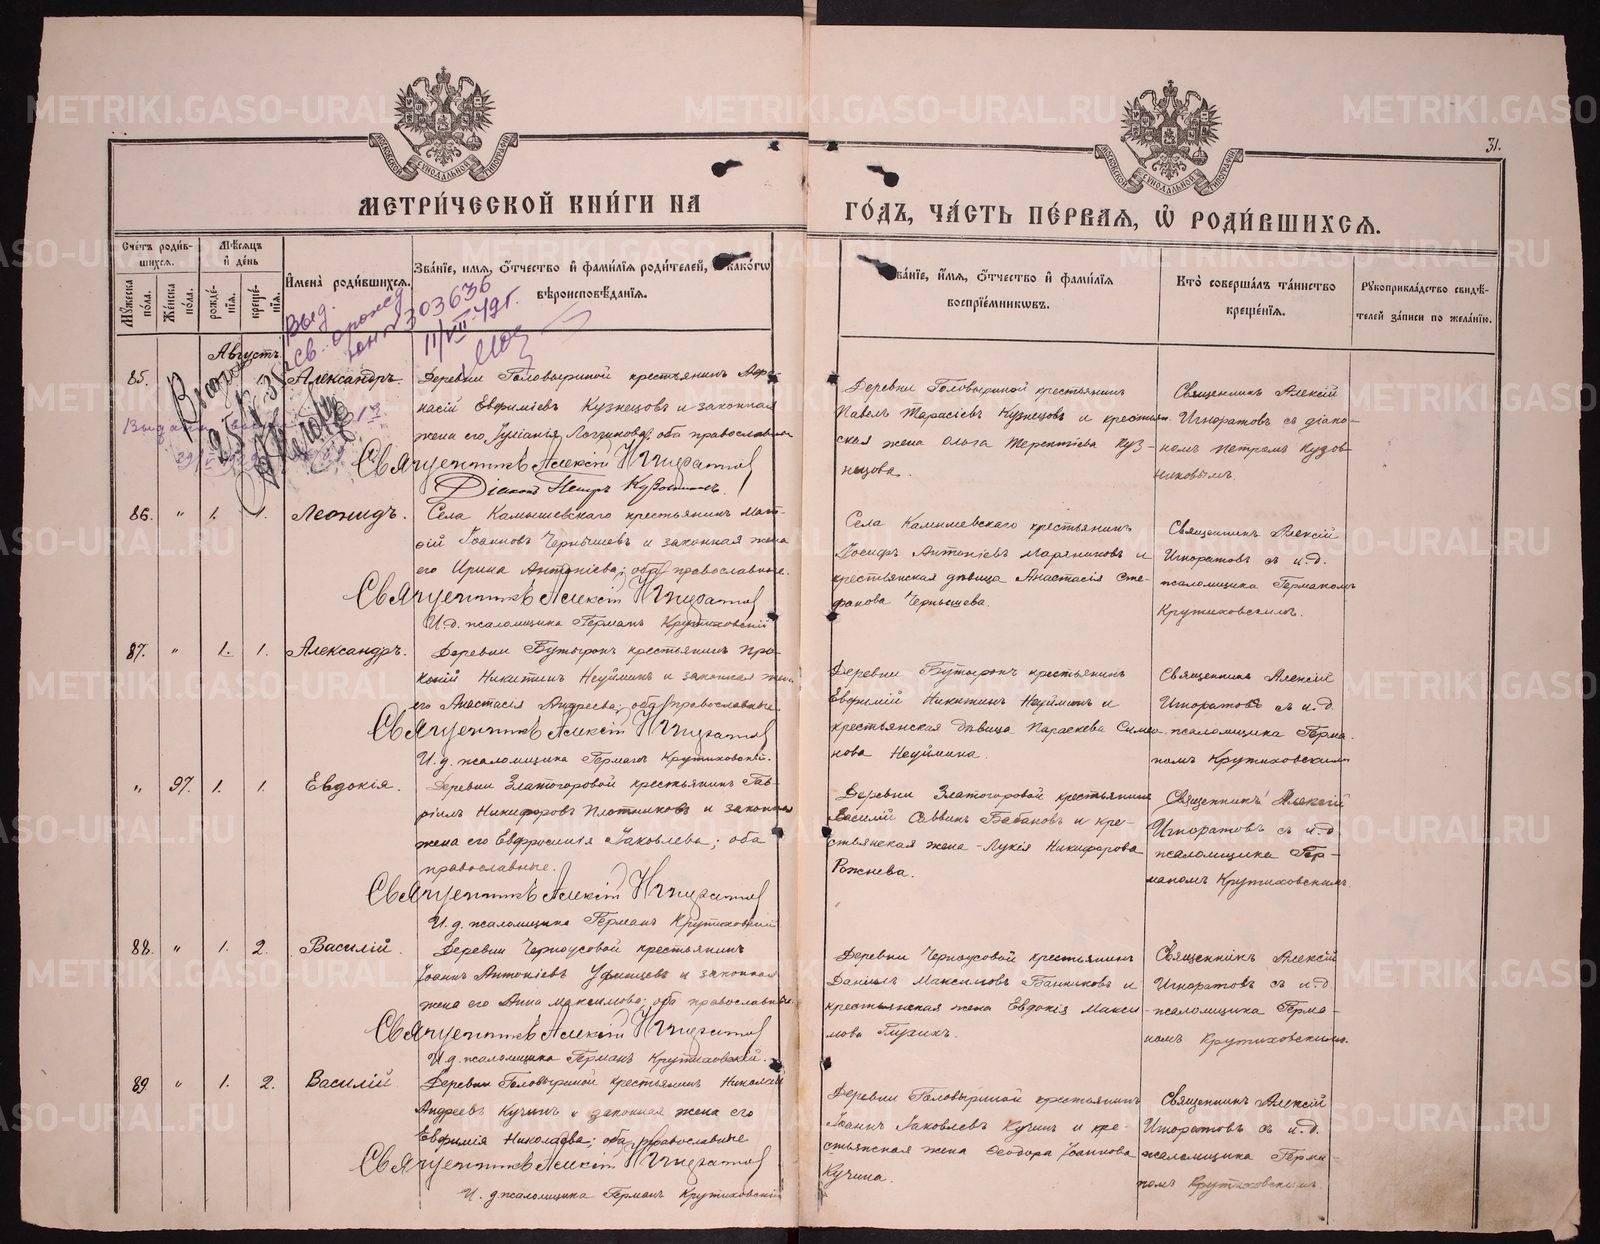 31.
МЕТРИ́ЧЕСКОЙ КНИ́ГИ НА
ГО́ДЪ, ЧА́СТЬ ПЕ́РВАЯ, Ѡ҆ РОДИ́ВШИХСЯ.
МОСКОВСКОЙ СѴНОДАЛЬНОЙ ТИПОГРАФІИ
МОСКОВСКОЙ СѴНОДАЛЬНОЙ ТИПОГРАФІИ
Сче́тъ роди́в-
шихся.
Му́жеска по́ла.
Же́нска по́ла.
Мѣ́сяцъ и҆ де́нь
рожде́-нїя.
креще́-нїя.
И҆мена̀ роди́вшихся.
Зва́нїе, и҆́мя, ѻ҆́тчество и҆ фами́лїя роди́телей, и҆ како́гѡ
вѣроисповѣ́данїя.
Зва́нїе, и҆́мя, ѻ҆́тчество и҆ фами́лїя
воспрїе́мниковъ.
Кто̀ соверша́лъ та́инство
креще́нїя.
Рꙋкоприкла́дство свидѣ́-
телей за́писи по жела́нїю.
Выд.
св. о рожд
303636
11/VIII-49г.
Августъ.
85.
Александръ.
Деревни Головыриной крестьянинъ Афа-
насій Евфиміевъ Кузнецовъ и законная
жена его Іуліанія Логгинова; оба православные
Священникъ Алексій Игноратовъ
Діаконъ Петръ Кузовниковъ.
Деревни Головыриной крестьянинъ
Павелъ Тарасіевъ Кузнецовъ и крестьян-
ская жена Ольга Терентіева Куз-
нецова.
Священникъ Алексій
Игноратовъ съ діако-
номъ Петромъ Кузов-
никовымъ.
86. " 1. 1. Леонидъ.
Села Камышевскаго крестьянинъ Мат-
ѳій Іоанновъ Чернышевъ и законная жена
его Ирина Антоніева; оба православные.
Священникъ Алексій Игноратовъ
И. д. псаломщика Германъ Крутиховскій
Села Камышевскаго крестьянинъ
Іосифъ Антоніевъ Маряниковъ и
крестьянская дѣвица Анастасія Сте-
фанова Чернышева.
Священникъ Алексій
Игноратовъ съ и.д.
псаломщика Германомъ
Крутиховскимъ.
87. " 1. 1. Александръ.
Деревни Бутырокъ крестьянинъ Про-
копій Никитинъ Неуйминъ и законная жена
его Анастасія Андреева; оба православные.
Священникъ Алексій Игноратовъ
И. д. псаломщика Германъ Крутиховскій.
Деревни Бутырокъ крестьянинъ
Евфимій Никитинъ Неуйминъ и
крестьянская дѣвица Параскева Симео-
нова Неуймина.
Священникъ Алексій
Игноратовъ съ и.д.
псаломщика Герма-
номъ Крутиховскимъ
" 97. 1. 1. Евдокія.
Деревни Златогоровой крестьянинъ Гав-
ріилъ Никифоровъ Плотниковъ и законная
жена его Евфросинія Іаковлева; оба
православные.
Священникъ Алексій Игноратовъ
И. д. псаломщика Германъ Крутиховскій
Деревни Златогоровой крестьянинъ
Василій Саввинъ Бабановъ и кре-
стьянская жена Лукія Никифорова
Рожнева.
Священникъ Алексій
Игноратовъ съ и.д.
псаломщика Гер-
маномъ Крутиховскимъ.
88. " 1. 2. Василій.
Деревни Черноусовой крестьянинъ
Іоаннъ Антоніевъ Уфинцевъ и законная
жена его Анна Максимова; оба православные.
Священникъ Алексій Игноратовъ
И. д. псаломщика Германъ Крутиховскій.
Деревни Черноусовой крестьянинъ
Даніилъ Максимовъ Банниковъ и
крестьянская жена Евдокія Макси-
мова
Священникъ Алексій
Игноратовъ съ и.д.
псаломщика Герма-
номъ Крутиховскимъ.
89 " 1. 2. Василій.
Деревни Головыриной крестьянинъ Николай
Андреевъ Кучинъ и законная жена его
Евфимія Николаева; оба православные
Священникъ Алексій Игноратовъ
И. д. псаломщика Германъ Крутиховскій
Деревни Головыриной крестьянинъ
Іоаннъ Іаковлевъ Кучинъ и кре-
стьянская жена Ѳеодора Іоаннова
Кучина.
Священникъ Алексій
Игноратовъ съ и.д.
псаломщика Герма-
номъ Крутиховскимъ.
METRIKI.GASO-URAL.RU